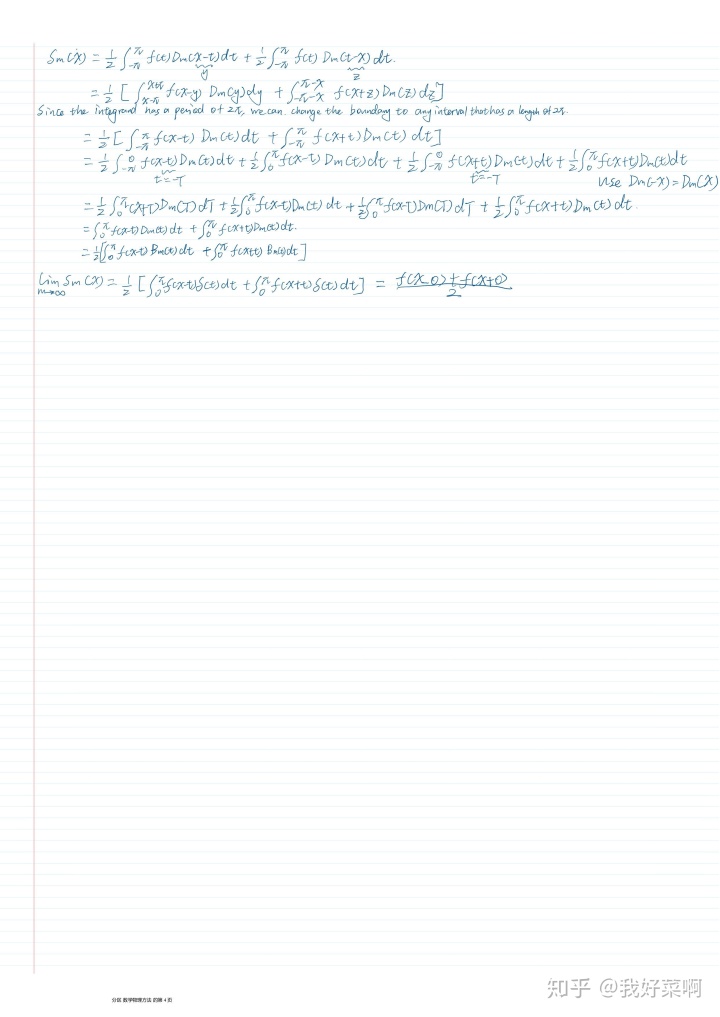 Sm(x) = 1/2 ∫_{-π}^{π} f(t) Dm(x-t) dt + 1/2 ∫_{-π}^{π} f(t) Dm(t-x) dt.
y z
= 1/2 [ ∫_{x-π}^{x+π} f(x-y) Dm(y) dy + ∫_{-π-x}^{π-x} f(x+z) Dm(z) dz ]
Since the integrand has a period of 2π, we can change the boundary to any interval that has a length of 2π.
= 1/2 [ ∫_{-π}^{π} f(x-t) Dm(t) dt + ∫_{-π}^{π} f(x+t) Dm(t) dt ]
= 1/2 ∫_{-π}^{0} f(x-t) Dm(t) dt + 1/2 ∫_{0}^{π} f(x-t) Dm(t) dt + 1/2 ∫_{-π}^{0} f(x+t) Dm(t) dt + 1/2 ∫_{0}^{π} f(x+t) Dm(t) dt
t=-T t=-T use Dm(-x) = Dm(x)
= 1/2 ∫_{0}^{π} (x+T) Dm(T) dT + 1/2 ∫_{0}^{π} f(x-t) Dm(t) dt + 1/2 ∫_{0}^{π} f(x-T) Dm(T) dT + 1/2 ∫_{0}^{π} f(x+t) Dm(t) dt.
= ∫_{0}^{π} f(x-t) Dm(t) dt + ∫_{0}^{π} f(x+t) Dm(t) dt.
= 1/2 [ ∫_{0}^{π} f(x-t) Bm(t) dt + ∫_{0}^{π} f(x+t) Bm(t) dt ]
lim_{m→∞} Sm(x) = 1/2 [ ∫_{0}^{π} f(x-t) δ(t) dt + ∫_{0}^{π} f(x+t) δ(t) dt ] = (f(x-0) + f(x+0))/2
分区 数学物理方法 的第 4 页
知乎 @我好菜啊